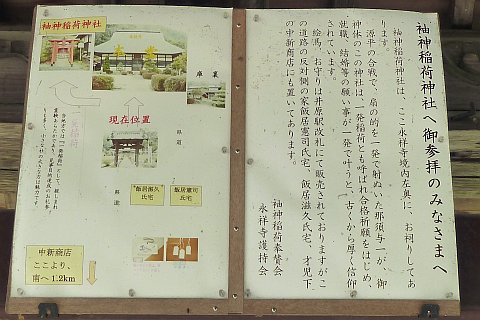 袖神稲荷神社へ御参拝のみなさまへ
袖神稲荷神社は、ここ永祥寺境内左奥に、お祠りしてあ
ります。
源平の合戦で、扇の的を一発で射ぬいた那須与一が、御
神体のこの神社は、一発稲荷とも呼ばれ合格祈願をはじめ、
就職、結婚等の願い事が一発で叶うと、古くから厚く信仰
されています。
絵馬、お守りは井原駅改札にて販売されておりますがこ
の道路の反対側の家飯居憲司氏宅、飯居滋久氏宅、才児下
の中新商店にも置いてあります。
袖神稲荷奉賛会
永祥寺護持会
袖神稲荷神社
本堂
庫裏
現在位置
県道
県道
飯居滋久
氏宅
飯居憲司
氏宅
中新商店
ここより、
南へ1.2km